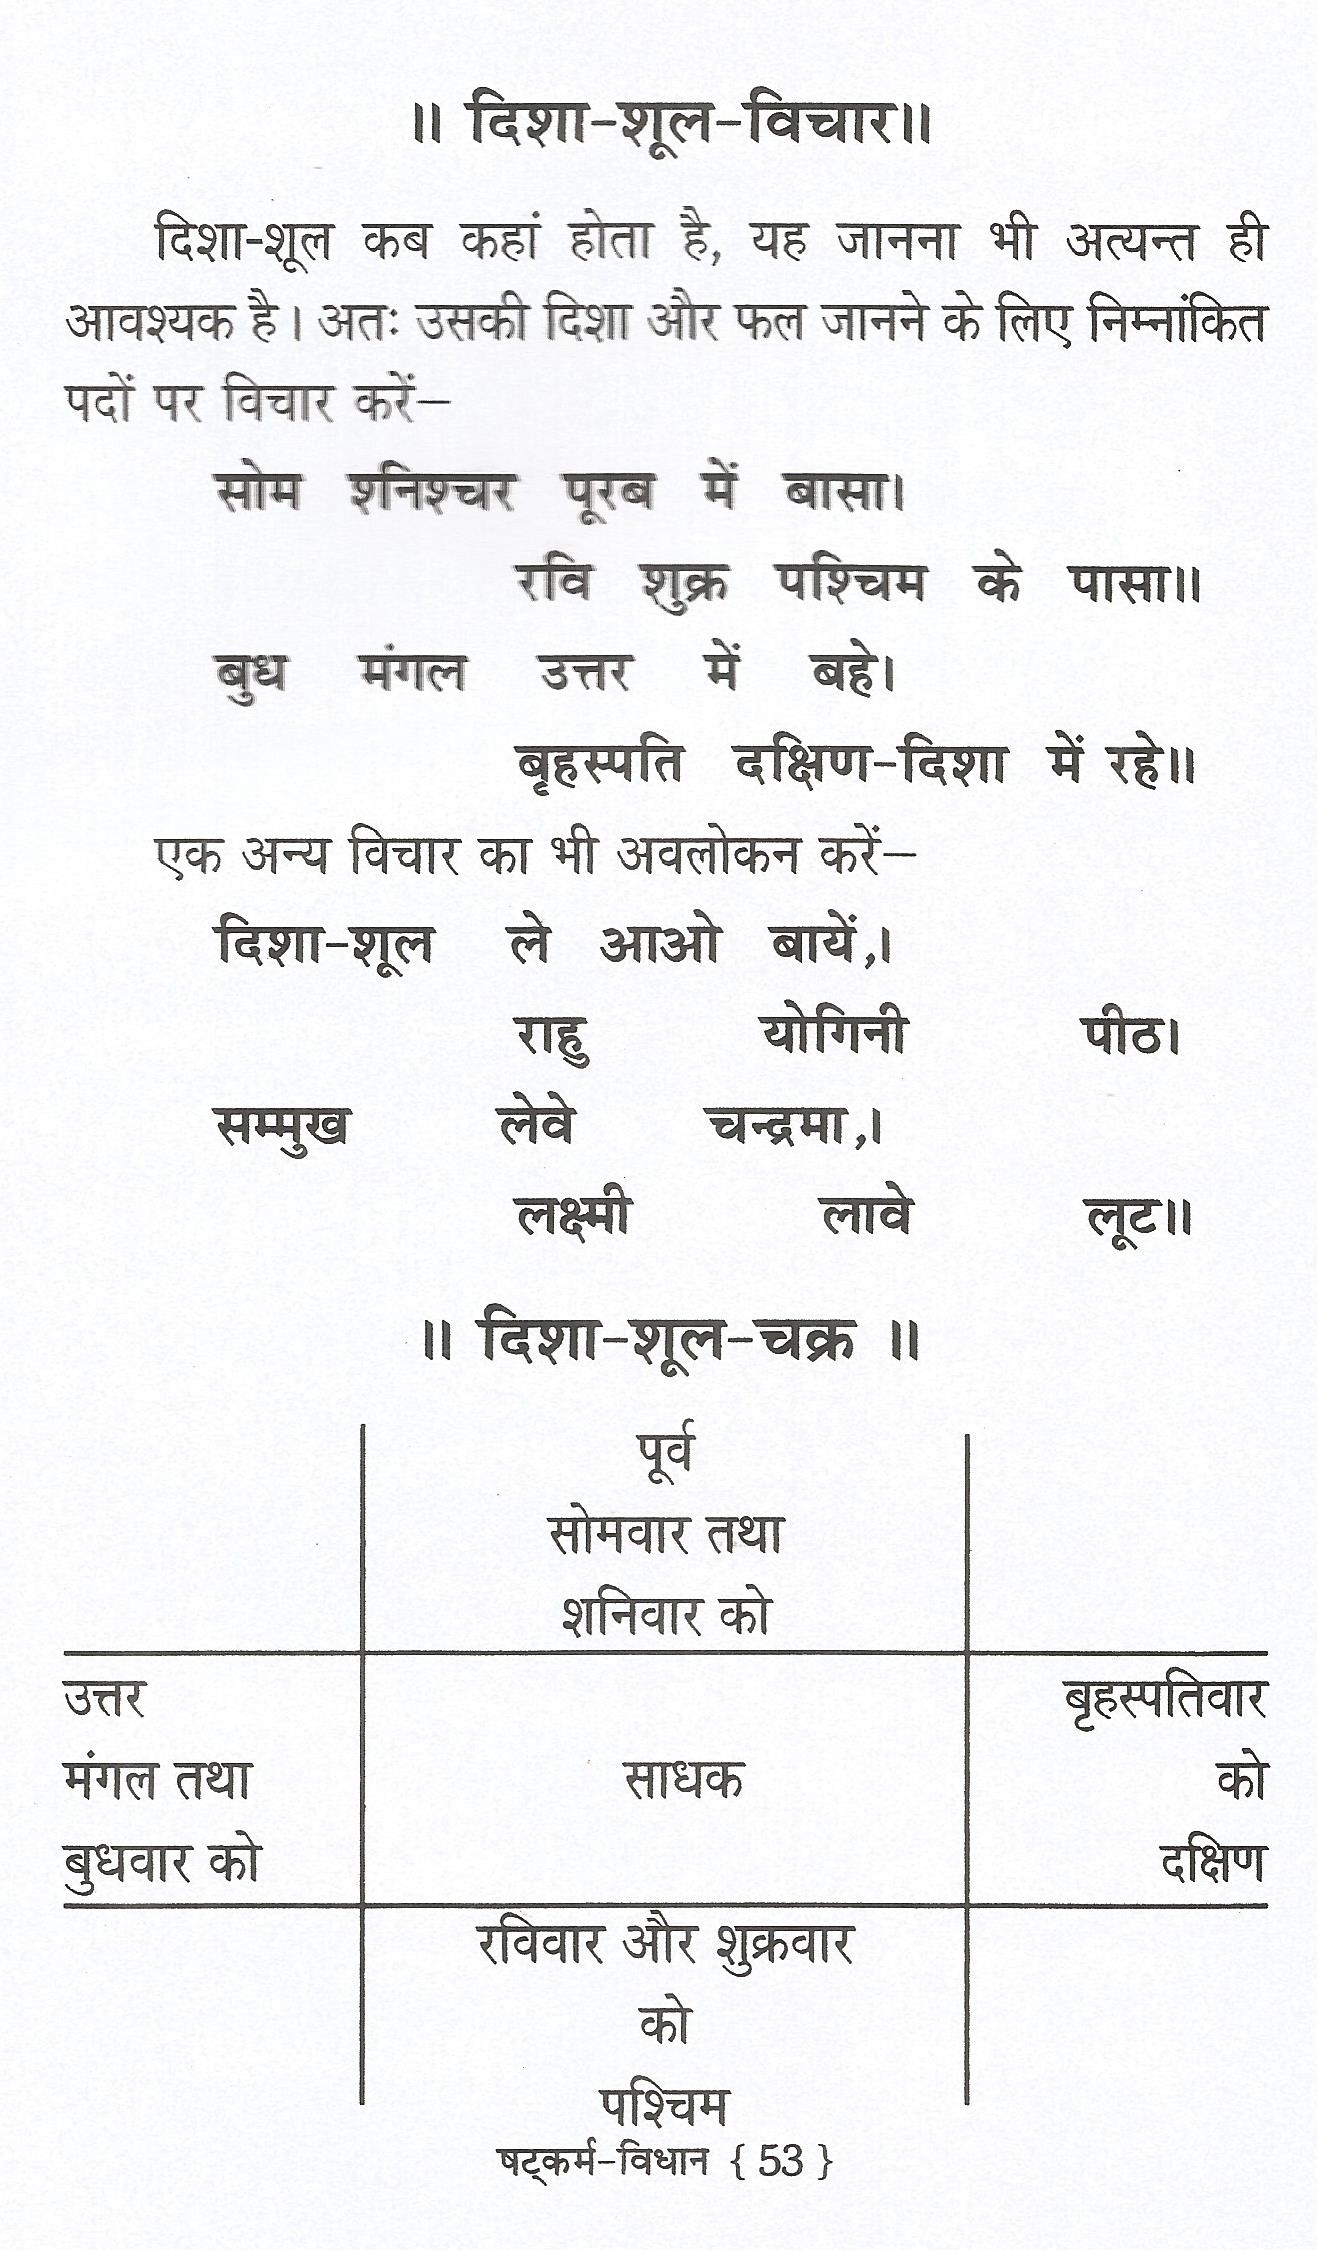 ॥ दिशा-शूल-विचार॥
दिशा-शूल कब कहां होता है, यह जानना भी अत्यन्त ही
आवश्यक है। अतः उसकी दिशा और फल जानने के लिए निम्नांकित
पदों पर विचार करें–
सोम शनिश्चर पूरब में बासा।
रवि शुक्र पश्चिम के पासा॥
बुध मंगल उत्तर में बहे।
बृहस्पति दक्षिण-दिशा में रहे॥
एक अन्य विचार का भी अवलोकन करें–
दिशा-शूल ले आओ बायें,।
राहु योगिनी पीठ।
सम्मुख लेवे चन्द्रमा,।
लक्ष्मी लावे लूट॥
॥ दिशा-शूल-चक्र ॥
पूर्व
सोमवार तथा
शनिवार को
उत्तर
मंगल तथा
बुधवार को
साधक
बृहस्पतिवार
को
दक्षिण
रविवार और शुक्रवार
को
पश्चिम
षट्कर्म-विधान { 53 }